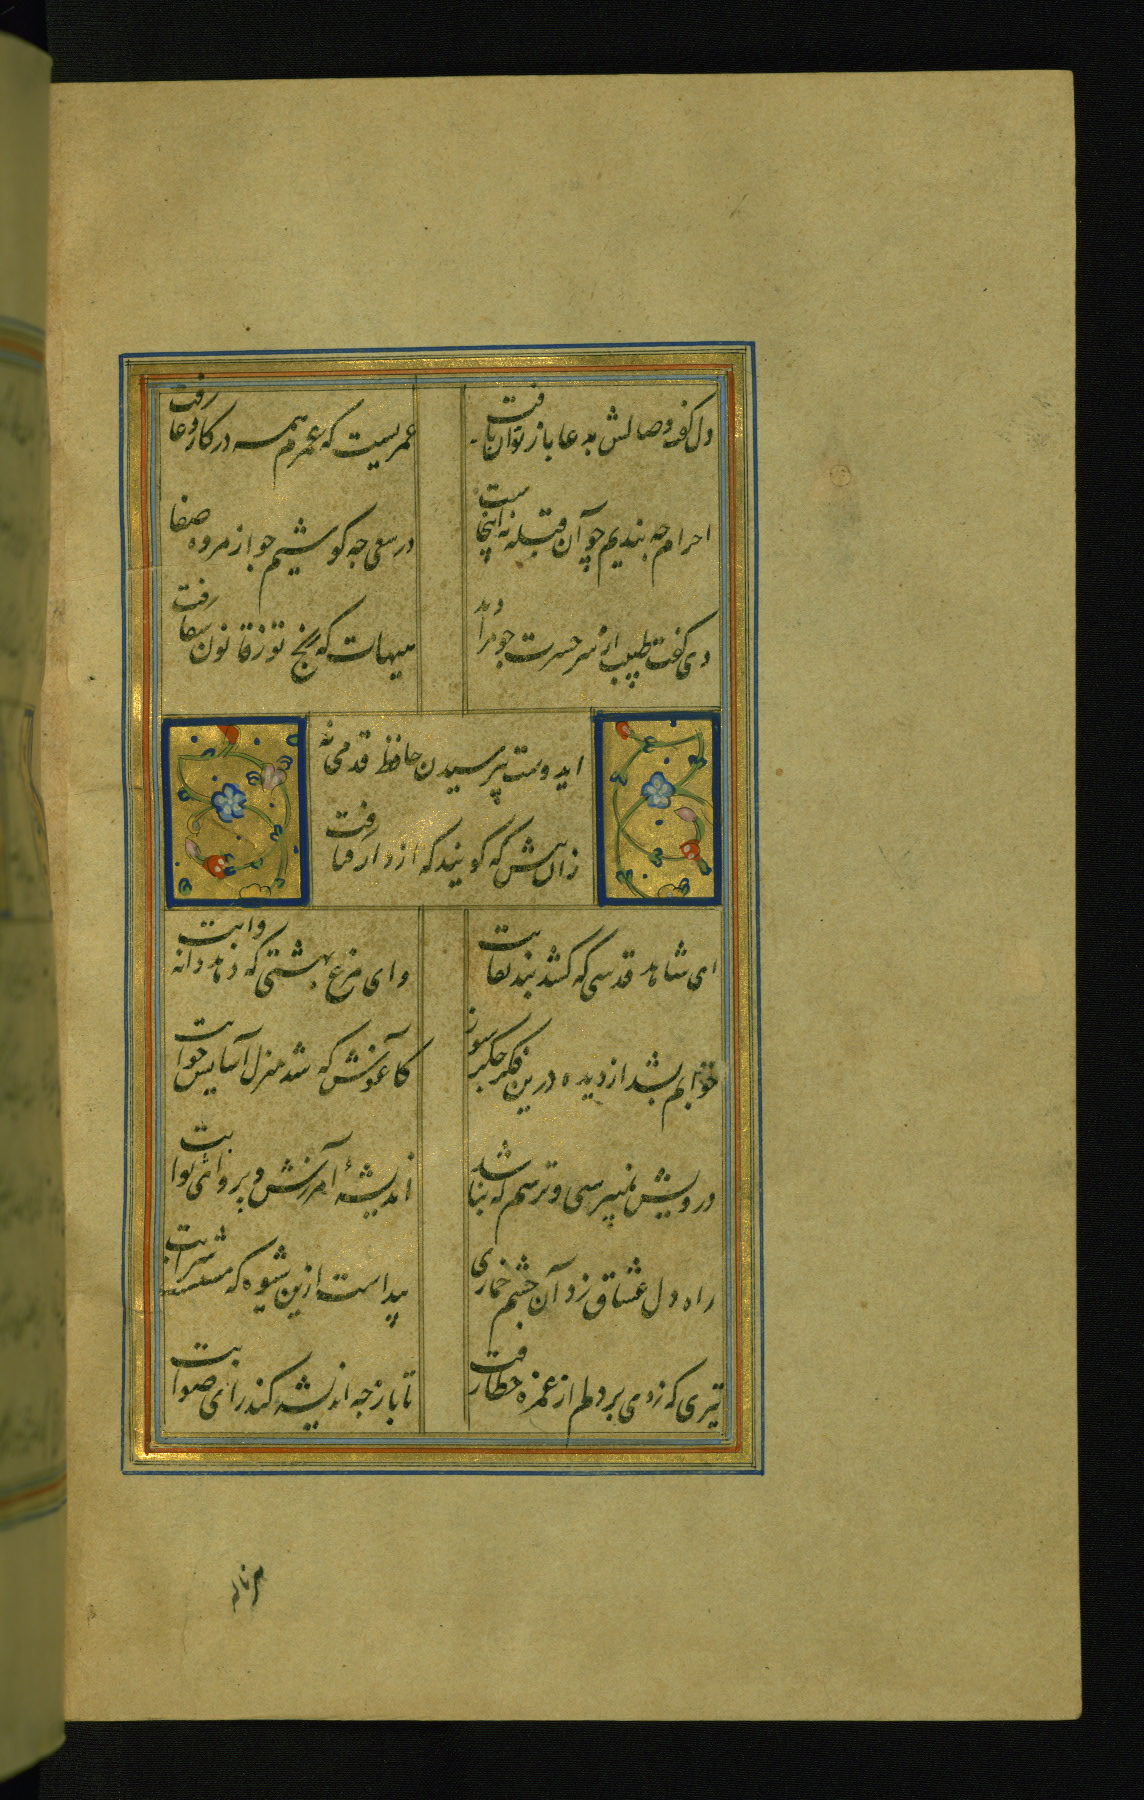 دل گفت وصالش بدعا باز توان یافت
عمریست که عمرم همه در کار دعا رفت
احرام چه بندیم چو آن قبله نه اینجاست
در سعی چه کوشیم چو از مروه صفا
دی گفت طبیب از سر حسرت چو مرا دید
هیهات که رنج تو ز قانون شفا رفت
ای دوست بپرسیدن حافظ قدمی نه
زان پیش که گویند که از دار فنا رفت
ای شاهد قدسی که کشد بند نقابت
وای مرغ بهشتی که دهد دانه و آبت
خوابم بشد از دیده درین فکر جگر سوز
کاغوش که شد منزل آسایش خوابت
درویش نمی‌پرسی و ترسم که نباشد
اندیشهٔ آمرزش و پروای ثوابت
راه دل عشاق زد آن چشم خماری
پیداست ازین شیوه که مستست شرابت
تیری که زدی بر دلم از غمزه خطا رفت
تا باز چه اندیشه کند رای صوابت